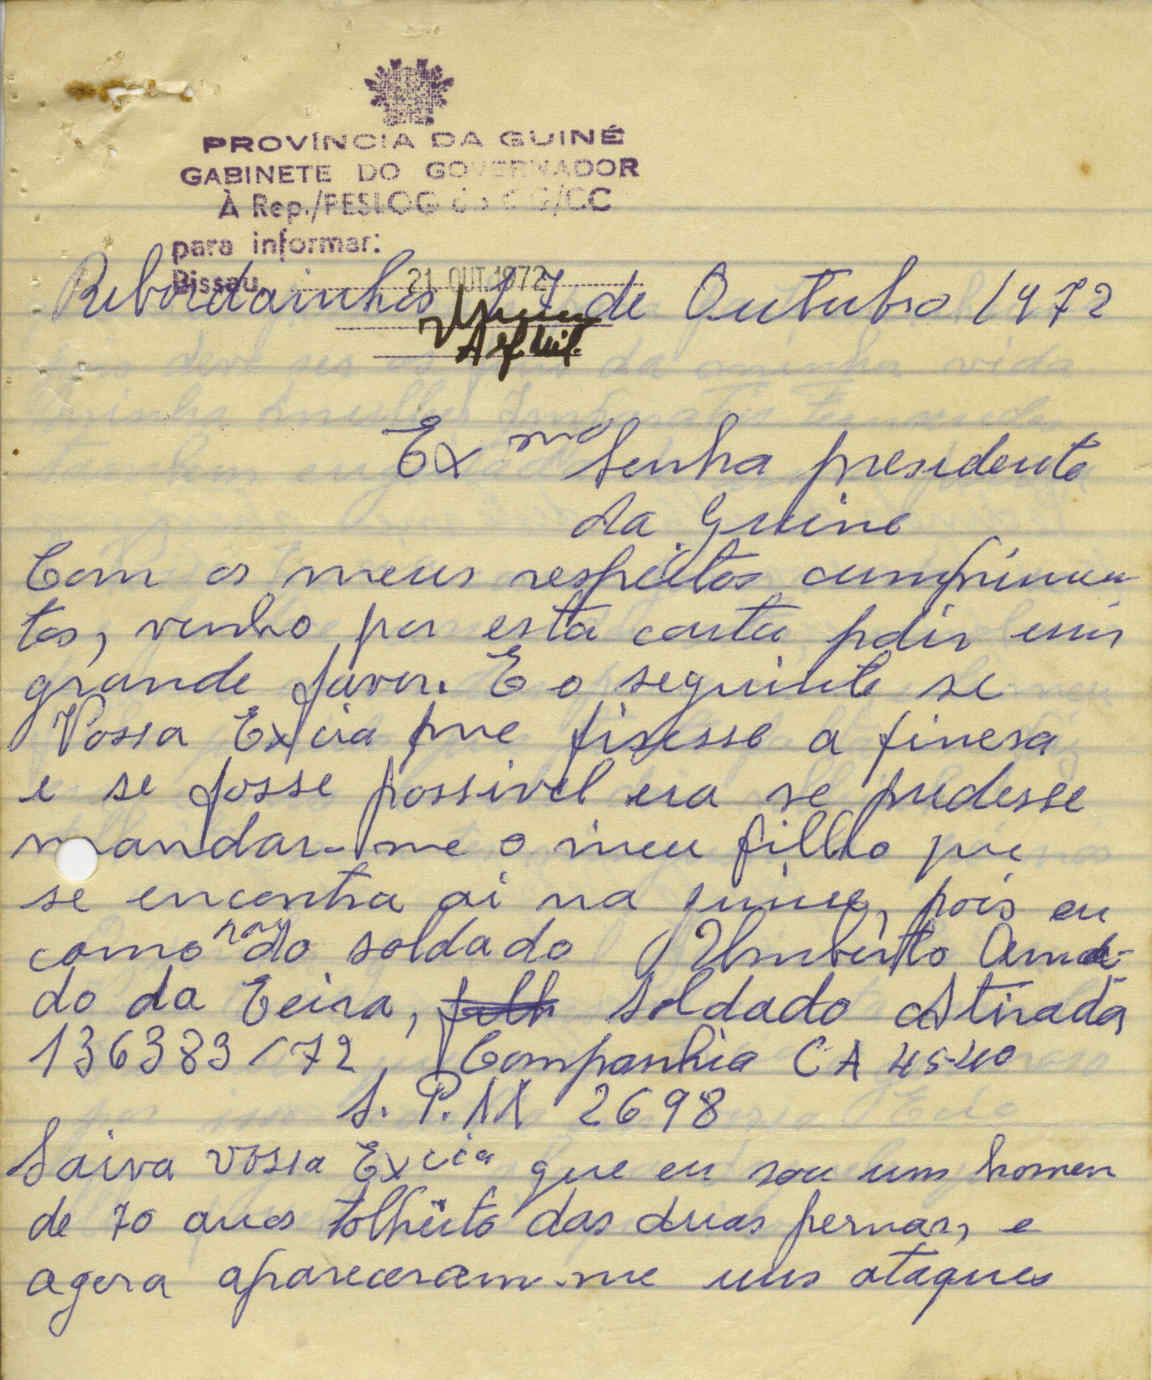 PROVÍNCIA DA GUINÉ
GABINETE DO GOVERNADOR
À Rep./PESLOG do CG/CC
para informar:
Bissau, 21 OUT. 1972
Rebordainhos 17 de Outubro 1972
Exmo Senha presidente
da Guine
Com os meus respeitos cumprimen
tos, venho por esta carta pdir um
grande favor. E o seguinte se
Vossa Excia que fizesse a finesa
e se fosse possivel era se pudesse
mandar-me o meu filho que
se encontra ai na guine, pois eu
como pai do soldado Umberto Ama-
do da Eeira, filh soldado Atirada
136383/72 Companhia CA 4540
S. P. M 2698
Saiva vossa Excia que eu sou um homen
de 70 anos tolheito das duas pernas, e
agora apareceram-me uns ataques